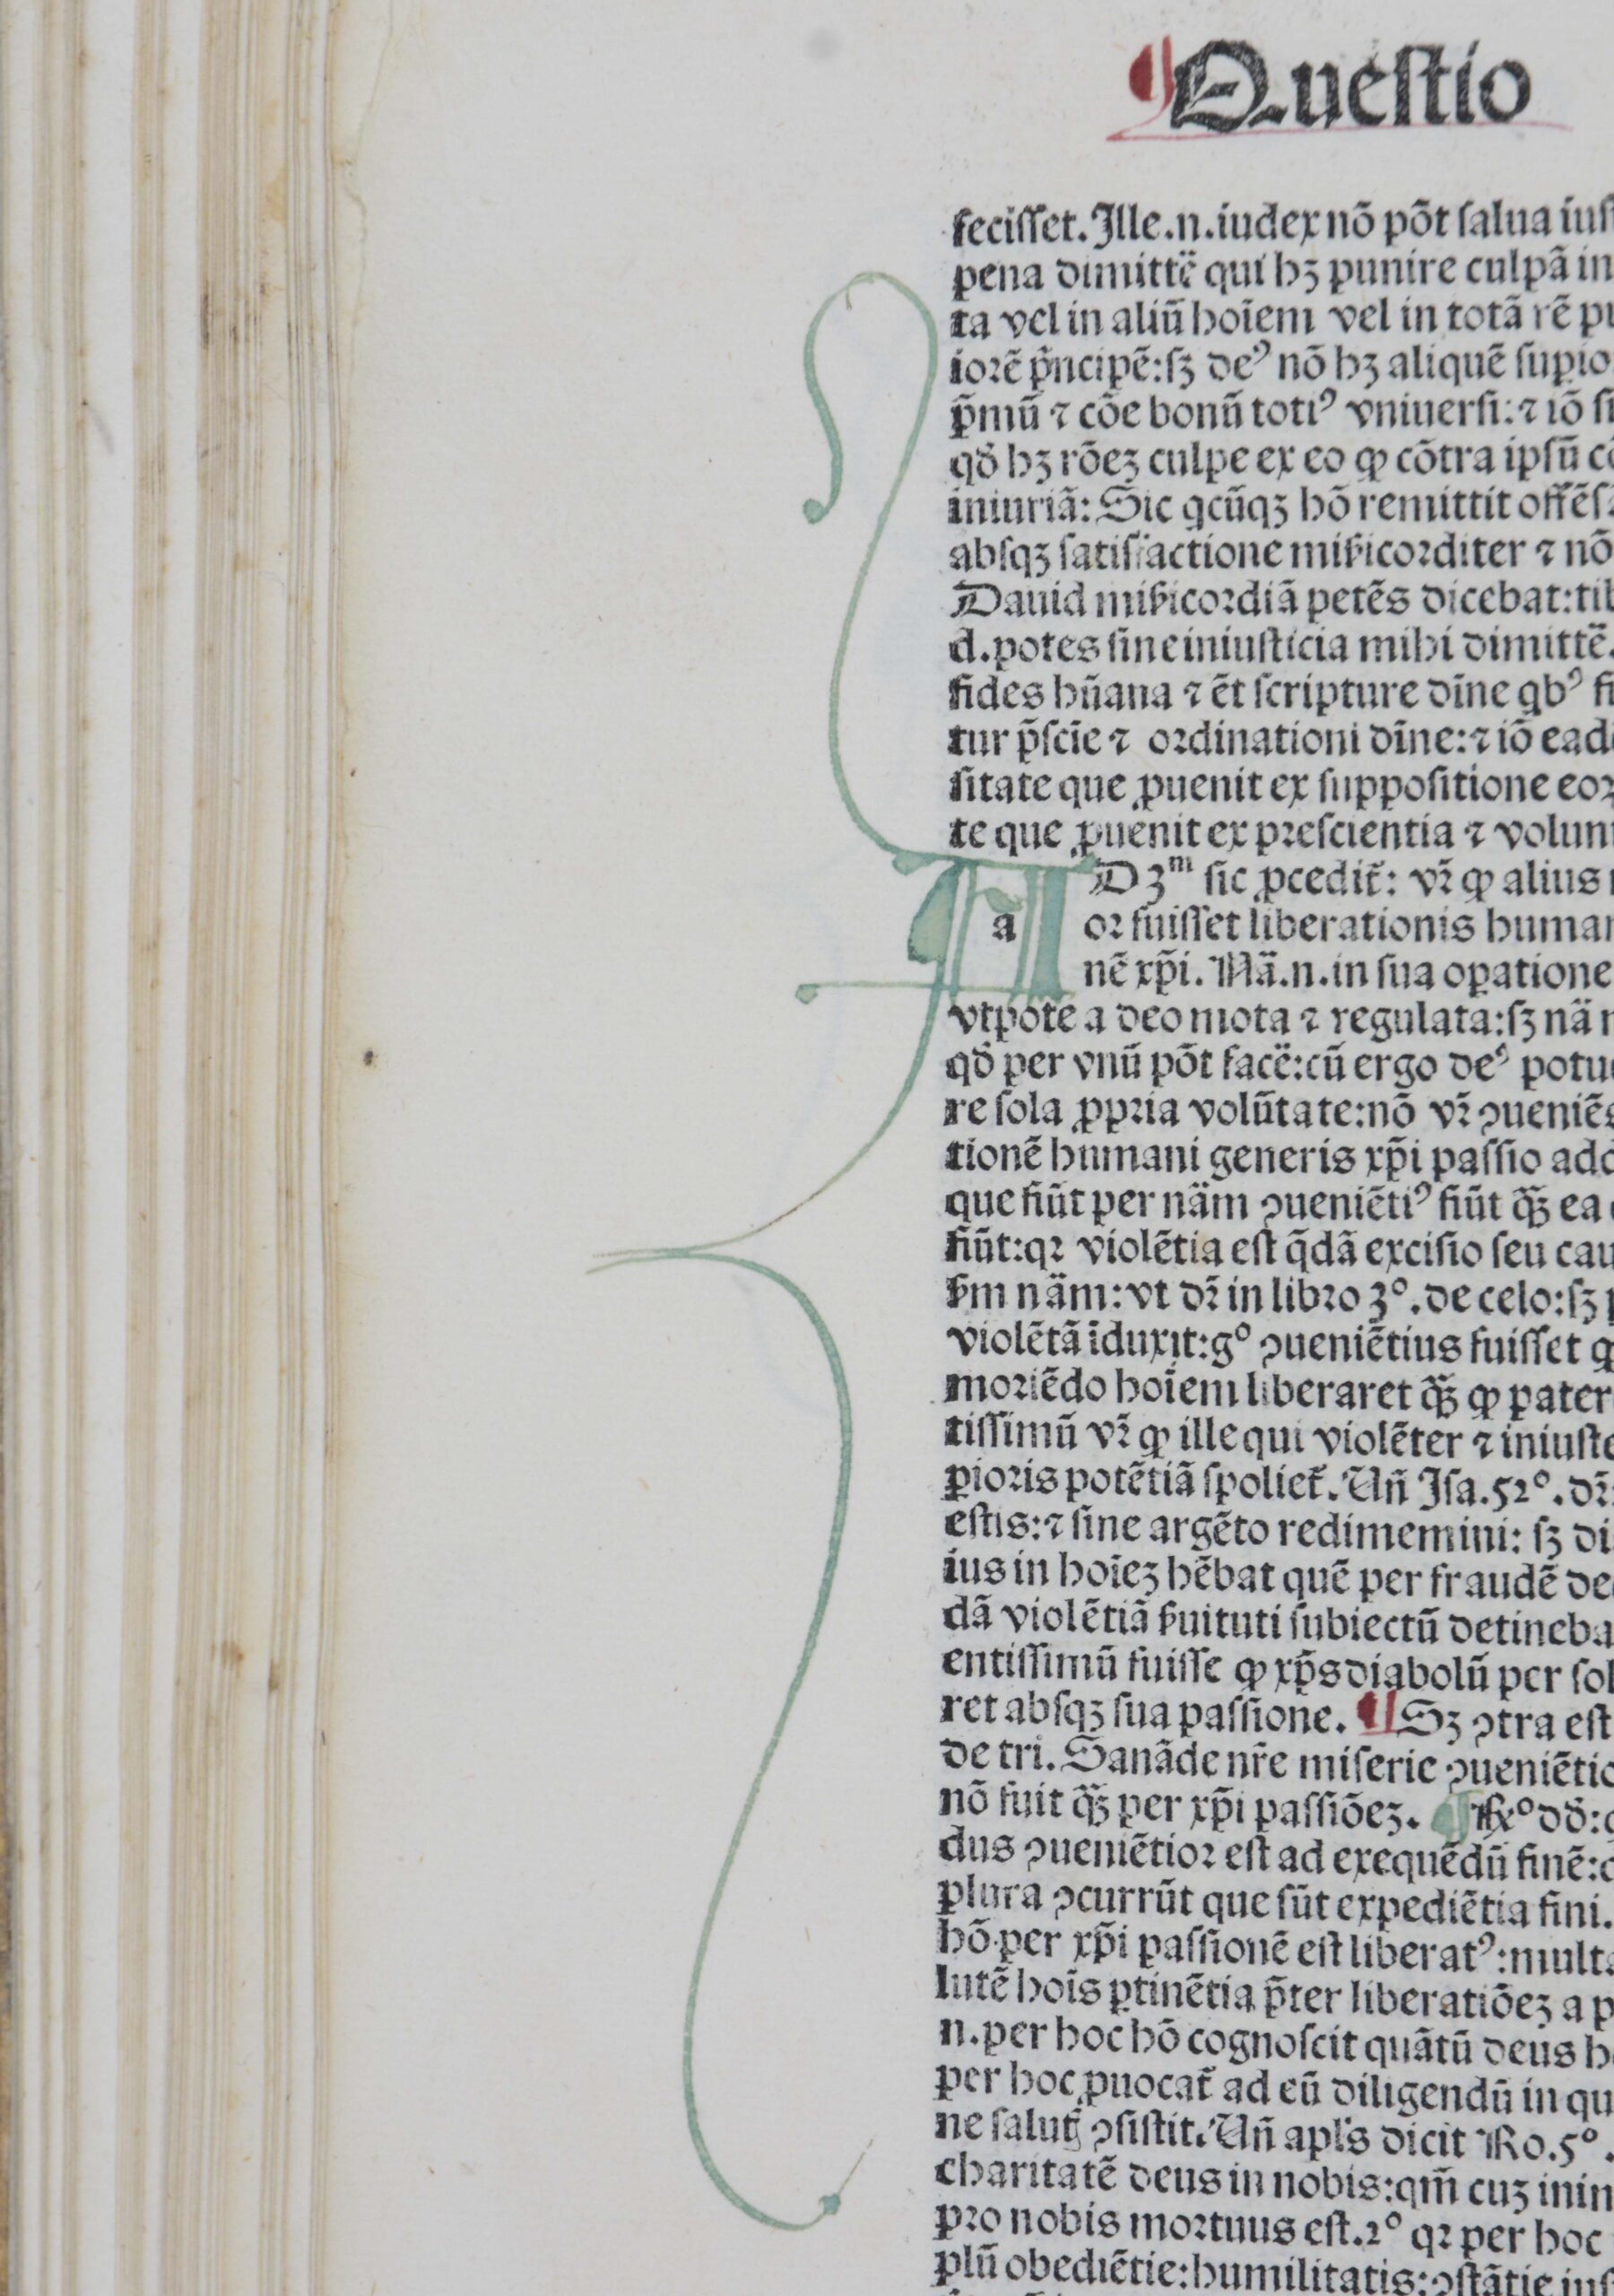 ¶Queſtio
feciſſet. Ille.n.iudex nō pōt ſalua iuſ
pena dimittē qui hꝫ punire culpā in
ta vel in aliū hoīem vel in totā rē pu
iorē p̄ncipē:ſꝫ deꝰ nō hꝫ aliquē ſupio
p̄mū ⁊ cōe bonū totiꝰ vniuerſi:⁊ iō ſi
qð hꝫ rōeꝫ culpe ex eo ꝙ cōtra ipſū cō
iniuriā: Sic qcūqꝫ hō remittit offēſ
abſqꝫ ſatiſfactione miẜicorditer ⁊ nō
Dauid miẜicordiā petēs dicebat:tib
d.potes ſine iniuſticia mihi dimittē.
fides hūana ⁊ ēt ſcripture dīne qbꝰ fi
tur p̄ſcīe ⁊ ordinationi dīne:⁊ iō eade
ſitate que ꝓuenit ex ſuppoſitione eoꝝ
te que ꝓuenit ex preſcientia ⁊ volun
A D 3ᵐ ſic ꝓcedit̄: vr̄ ꝙ alius
a or fuiſſet liberationis human
nē xp̄i. Nā.n.in ſua oꝑatione
vtpote a deo mota ⁊ regulata:ſꝫ nā n
qð per vnū pōt facē:cū ergo deꝰ potu
re ſola ꝓpria volūtate:nō vr̄ ꝯueniēs
tionē humani generis xp̄i paſſio add
que fiūt per nām ꝯueniētiꝰ fiūt q̄ꝫ ea
fiūt:qꝛ violētia eſt q̄dā exciſio ſeu caſ
ẜm nām:vt dr̄ in libro 3º.de celo:ſꝫ
violētā īduxit:gº ꝯueniētius fuiſſet q
moriēdo hoīem liberaret q̄ꝫ ꝙ pater
tiſſimū vr̄ ꝙ ille qui violēter ⁊ iniuſte
ꝑioris potētiā ſpoliet̄. Un̄ Iſa.52º.dr̄:
eſtis:⁊ ſine argēto redimemini: ſꝫ di
ius in hoīeꝫ hēbat quē per fraudē de
dā violētiā ẜuituti ſubiectū detineba
entiſſimū fuiſſe ꝙ xp̄s diabolū per ſol
ret abſqꝫ ſua paſſione. ¶ Sꝫ ꝯtra eſt
de tri. Sanāde nr̄e miſerie ꝯueniētio
nō fuit q̄ꝫ per xp̄i paſſiōeꝫ. ¶ Rx̄º dð:
dus ꝯueniētior eſt ad exequēdū finē:
plura ꝯcurrūt que ſūt expediētia fini.
hō per xp̄i paſſionē eſt liberatꝰ:multa
lutē hoīs ꝑtinētia p̄ter liberatiōeꝫ a p
n.per hoc hō cognoſcit quātū deus h
per hoc ꝓuocat̄ ad eū diligendū in qu
ne ſalutꝭ ꝯſiſtit. Un̄ apl's dicit Ro.5º.
charitatē deus in nobis:qm̄ cuꝫ inim
pro nobis mortuus eſt.2º qꝛ per hoc
plū obediētie:humilitatis:ꝯſtātie iuſ